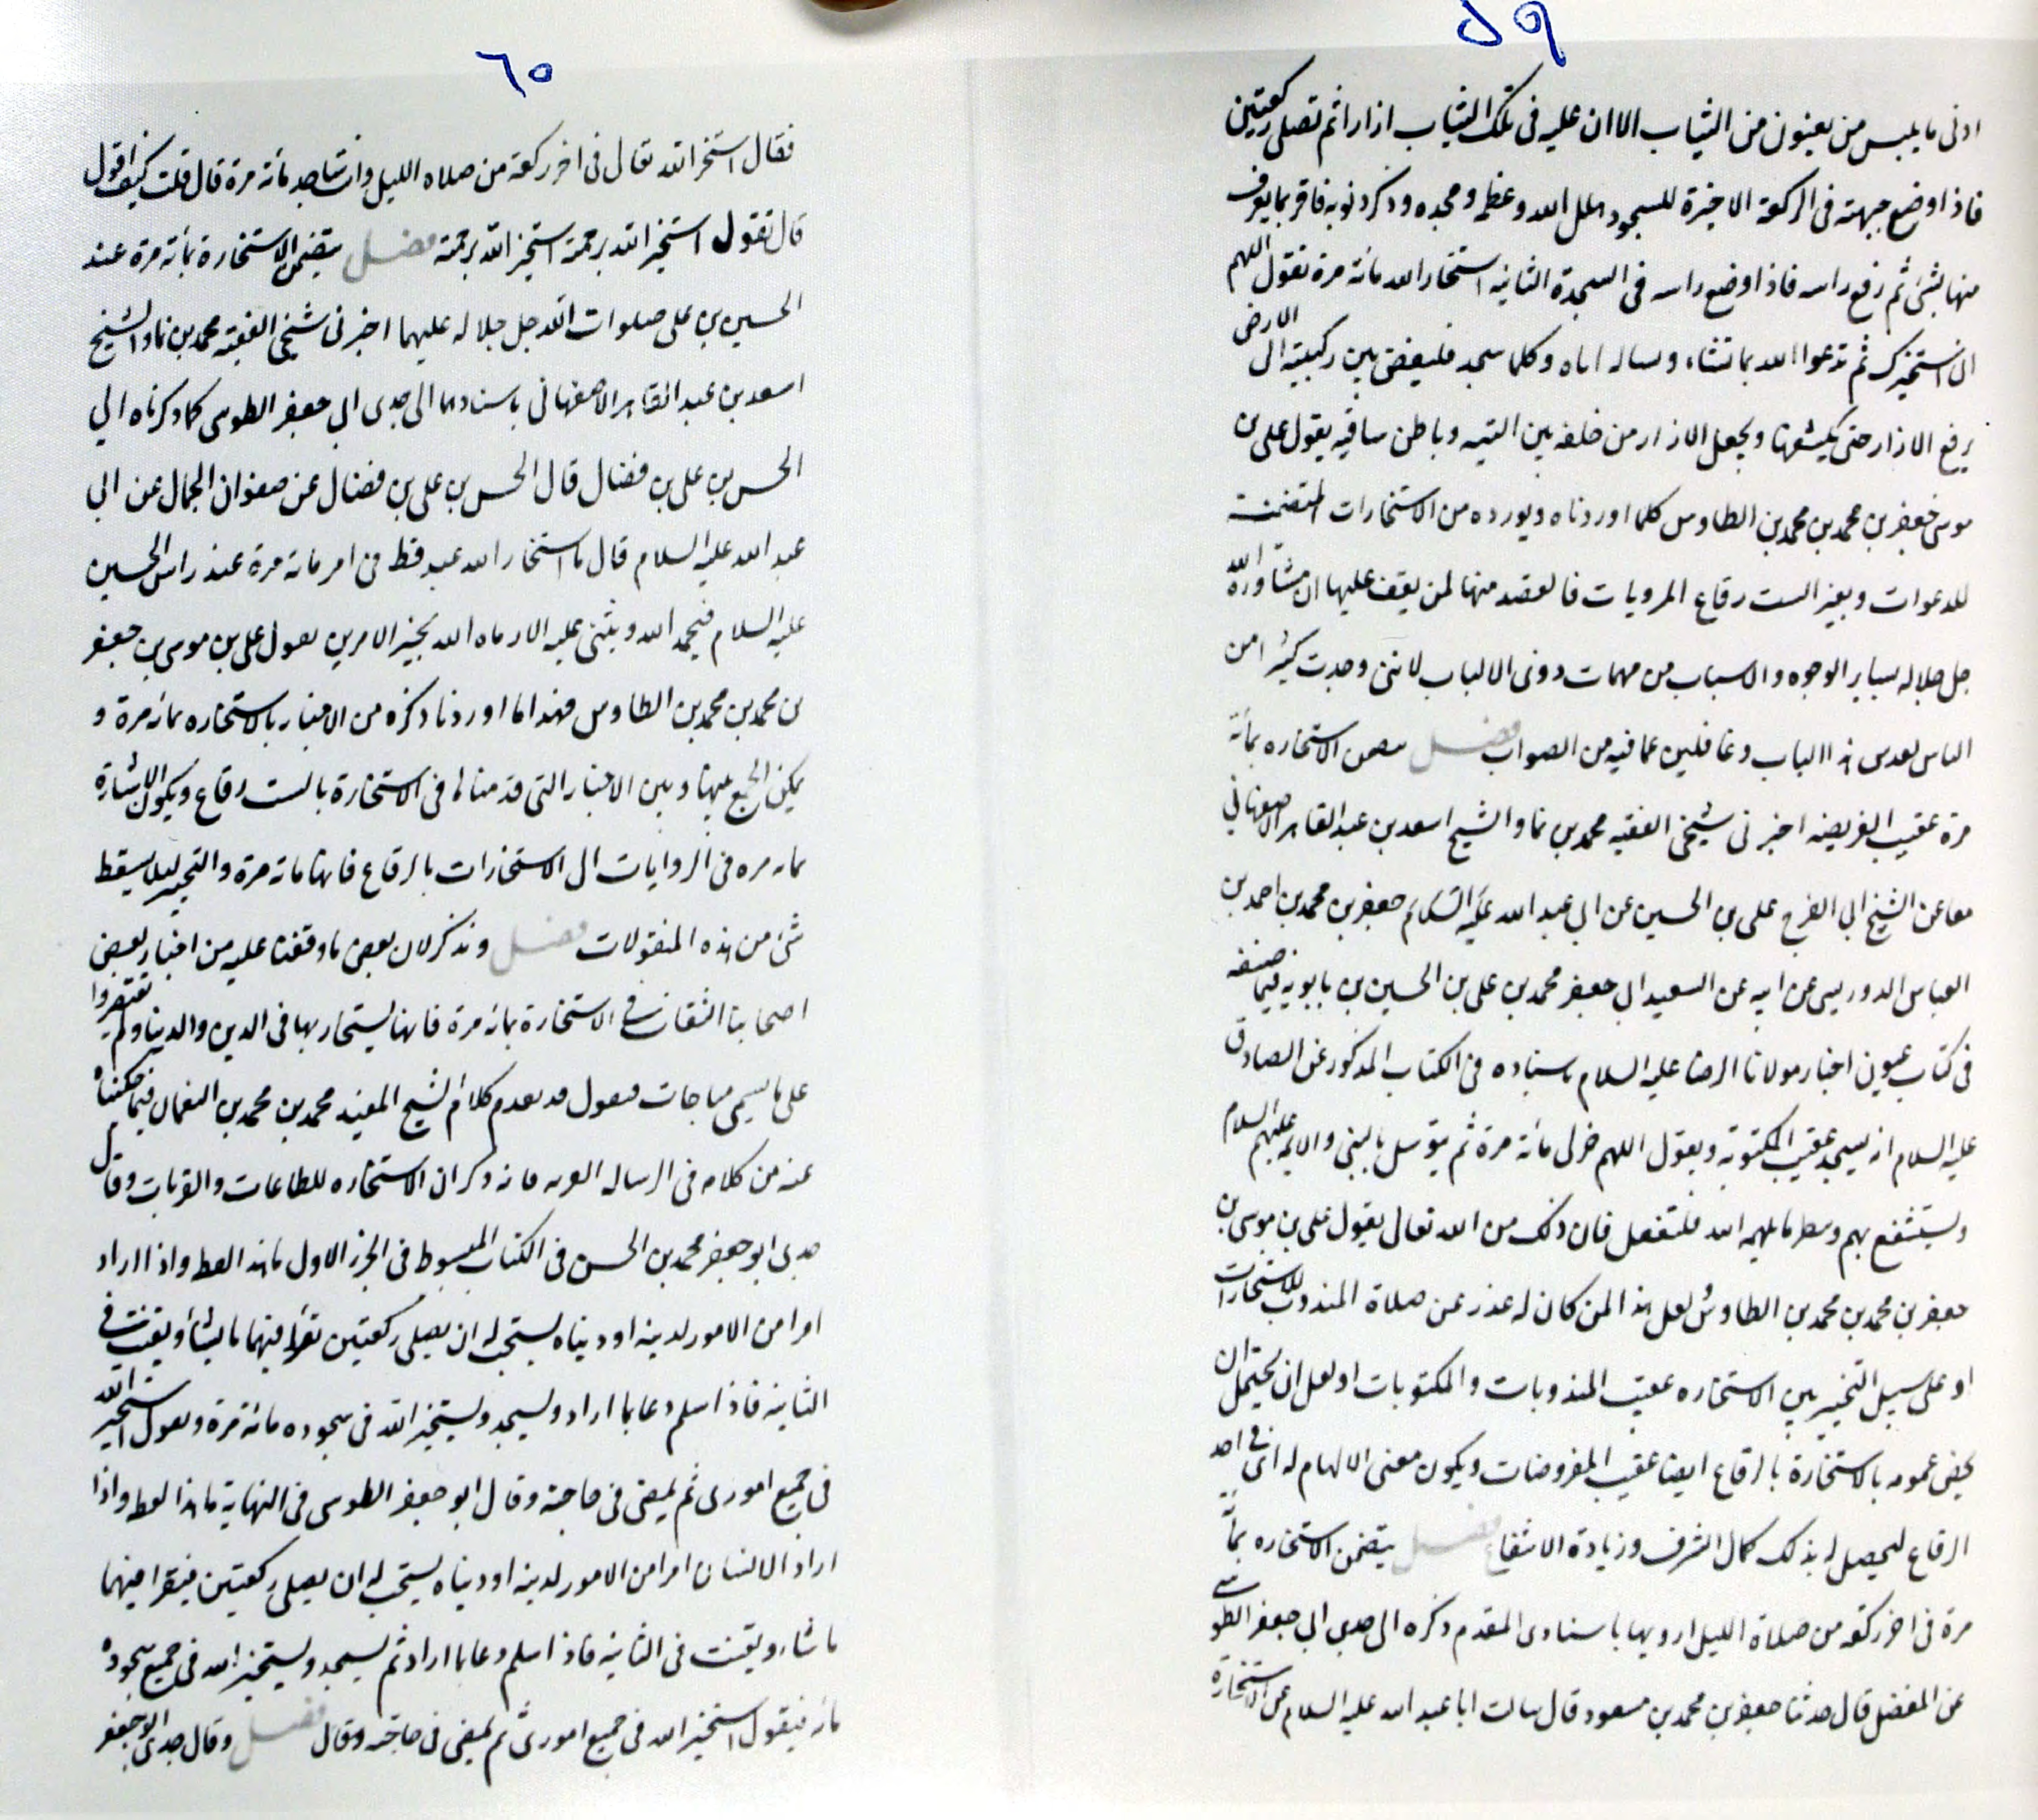 ٥٩
ادنى ما يلبس من يعبنون من الثياب الا ان عليه فى تلك الثياب ازارا ثم تصلى ركعتين
فاذا وضع جبهته فى الركعة الاخيرة للسجود هلل الله وعظمه ومجده وذكر ذنوبه فاقر بما يعرف
منها بشئ ثم رفع راسه فاذا وضع راسه فى السجدة الثانيه استخار الله مائة مرة تقول اللهم
انى استخيرك ثم تدعوا الله بما تشاء وساله اياه وكلما سجد فليفض بين ركبتيه الى الارض
يرفع الازار حتى يكشفها ويجعل الازار من خلفه بين اليتيه وباطن ساقيه يقول على بن
موسى جعفر بن محمد بن محمد بن الطاوس كلما اوردناه ويورده من الاستخارات المتضمنة
للدعوات وبغير الست رقاع المرويات فالقصد منها لمن يقف عليها ان مشاورة الله
جل جلاله بساير الوجوه والاسباب من مهمات ذوى الالباب لاننى وجدت كثيرا من
الناس لعدس هذا الباب وغافلين عما فيه من الصواب فصل يتضمن الاستخاره بمأئة
مرة عقيب الفريضه اخبرنى شيخى الفقيه محمد بن نما والشيخ اسعد بن عبد القاهر الاصفهانى
معا عن الشيخ ابى الفرج على بن الحسين عن ابى عبد الله عليه السلام جعفر بن محمد بن احمد بن
العباس الدوريسى عن ابيه عن السعيد ابى جعفر محمد بن على بن الحسين بن بابويه فيما صنفه
فى كتاب عيون اخبار مولانا الرضا عليه السلام باسناده فى الكتاب المذكور عن الصادق
عليه السلام انه يسجد عقيب المكتوبة ويقول اللهم خر لى مائة مرة ثم يتوسل بالنبى والايمه عليهم السلام
ويستشفع بهم وينظر ما يلهمه الله فلتفعل فان ذلك من الله تعالى يقول على بن موسى بن
جعفر بن محمد بن محمد بن الطاوس لعل هذا لمن كان له عذر عن صلاة المندوب للاستخارات
او على سبيل التخيير بين الاستخاره عقيب المندوبات والمكتوبات او لعل ان يحتمل ان
يخص عمومه بالاستخارة بالرقاع ايضا عقيب المفروضات ويكون معنى الالهام له اى فى اخذ
الرقاع ليحصل له بذلك كمال الشرف وزيادة الانتفاع فصل يتضمن الاستخاره بمأئة
مرة فى اخر ركعة من صلاة الليل ارويها باسنادى المقدم ذكره الى جدى ابى جعفر الطوسى
عن المفضل قال حدثنا جعفر بن محمد بن مسعود قال سالت ابا عبد الله عليه السلام عن الاستخارة
٦٠
فقال استخر الله تعالى فى اخر ركعة من صلاه الليل وانت ساجد مائة مرة قال قلت كيف اقول
قال تقول استخير الله برحمته استخير الله برحمته فصل يتضمن الاستخارة بمأئة مرة عند
الحسين بن على صلوات الله جل جلاله عليهما اخبرنى شيخى الفقيه محمد بن نما والشيخ
اسعد بن عبد القاهر الاصفهانى باسنادهما الى جدى ابى جعفر الطوسى كما ذكرناه الى
الحسن بن على بن فضال قال الحسن بن على بن فضال عن صفوان الجمال عن ابى
عبد الله عليه السلام قال ما استخار الله عبد قط فى امر مائة مرة عند راس الحسين
عليه السلام فيحمد الله ويثنى عليه الا رماه الله بخير الامرين يقول على بن موسى بن جعفر
بن محمد بن محمد بن الطاوس فهذا ما اوردنا ذكره من الاخبار بالاستخاره بمائه مرة و
يمكن الجمع بينها وبين الاخبار التى قدمناها فى الاستخارة بالست رقاع ويكون الاشارة
بمائه مره فى الروايات الى الاستخارات بالرقاع فانها مائة مرة والتخيير لئلا يسقط
شئ من هذه المنقولات فصل ونذكر لان بعض ما وقفنا عليه من اخبار بعض
اصحابنا الثقات فى الاستخارة بمائه مرة فانها يستخار بها فى الدين والدنيا ولم تقتصروا
على ما يسمى مباحات فنقول قد تقدم كلام الشيخ المفيد محمد بن محمد بن النعمان فيما حكيناه
عنه من كلامه فى الرساله العزيه فانه ذكر ان الاستخاره للطاعات والقربات وقال
جدى ابو جعفر محمد بن الحسن فى الكتاب المبسوط فى الجزء الاول ما هذا لفظه واذا اراد
امرا من الامور لدينه او دنياه يستحب له ان يصلى ركعتين تقرا فيهما ما يشاء ويقنت فى
الثانيه فاذا سلم دعا بما اراد وليسجد وليستخير الله فى سجوده مائة مرة ويقول استخير الله
فى جميع امورى ثم يمضى فى حاجته وقال ابو جعفر الطوسى فى النهاية ما هذا لفظه واذا
اراد الانسان امرا من الامور لدينه او دنياه يستحب له ان يصلى ركعتين فيقرا فيهما
ما شاء ويقنت فى الثانية فاذا سلم دعا بما اراد ثم ليسجد وليستخير الله فى جميع سجوده
مائه فيقول استخير الله فى جميع امورى ثم يمضى فى حاجته وقال فصل وقال جدى ابو جعفر